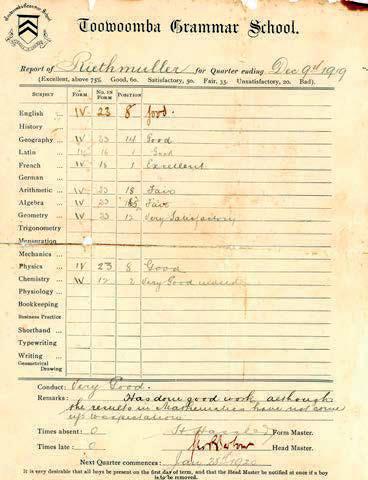 Toowoomba Grammar School.
Report of Riethmuller for Quarter ending Dec 9th 1919
(Excellent, above 75%. Good, 60. Satisfactory, 50. Fair, 35. Unsatisfactory, 20. Bad).
SUBJECT FORM NO. IN FORM POSITION
English ... IV 23 8 good.
History ...
Geography ... IV 23 14 Good
Latin ... 16 1 Good
French ... IV 18 1 Excellent
German ...
Arithmetic ... IV 23 18 Fair
Algebra ... IV 23 Fair
Geometry ... IV 23 12 Very Satisfactory
Trigonometry
Mensuration
Mechanics ...
Physics ... IV 23 8 Good
Chemistry ... IV 12 2 Very Good indeed
Physiology ...
Bookkeeping
Business Practice
Shorthand ...
Typewriting
Writing ...
Geometrical Drawing
Conduct: Very Good.
Remarks: Has done good work, although
the results in Mathematics have not come
up to expectation
Times absent: 0 Form Master.
Times late: 0 Head Master.
Next Quarter commences: Jan 1920
It is very desirable that all boys be present on the first day of term, and that the Head Master be notified at once if a boy
is to be removed.